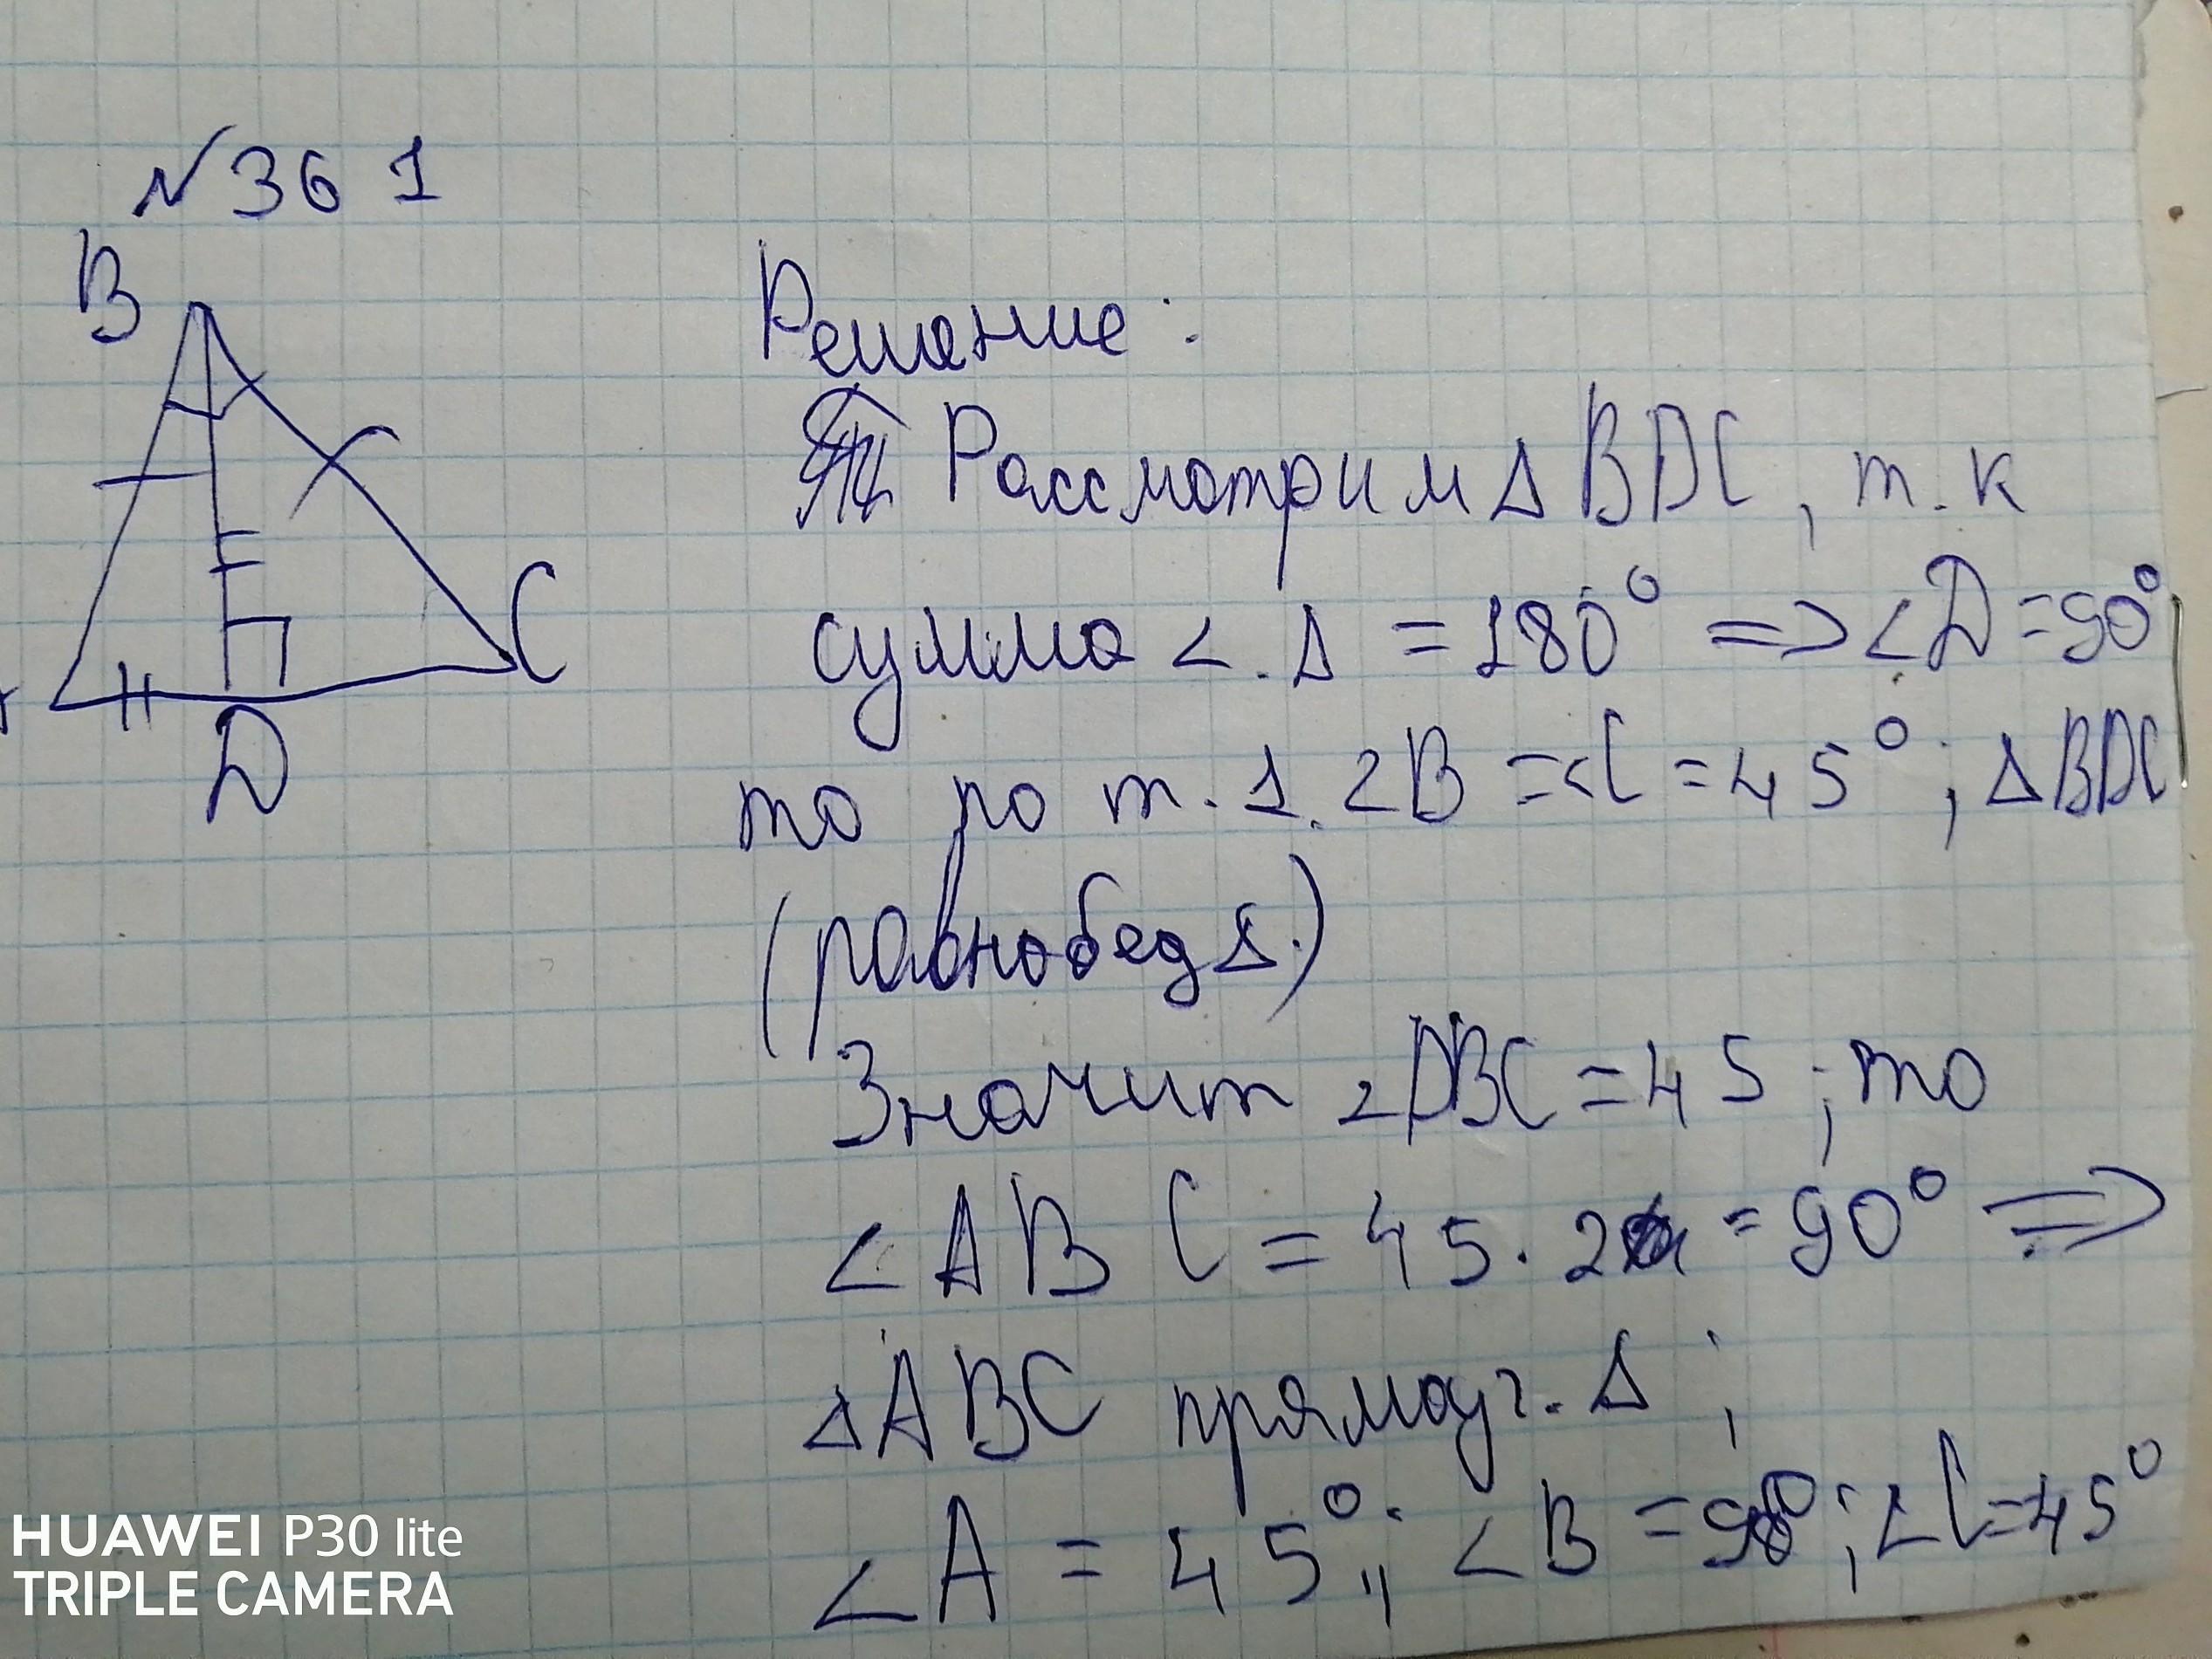 №361
B
C
D
Решение:
Рассмотрим Δ BDC, т.к
сумма ∠.Δ = 180° => ∠D = 90°
то по т.1. ∠B = ∠C = 45°; Δ BDC
(равнобед Δ.)
Значит ∠DBC = 45; то
∠ABC = 45·2 = 90° =>
ΔABC прямоуг. Δ;
∠A = 45°; ∠B = 90°; ∠C = 45°
HUAWEI P30 lite
TRIPLE CAMERA